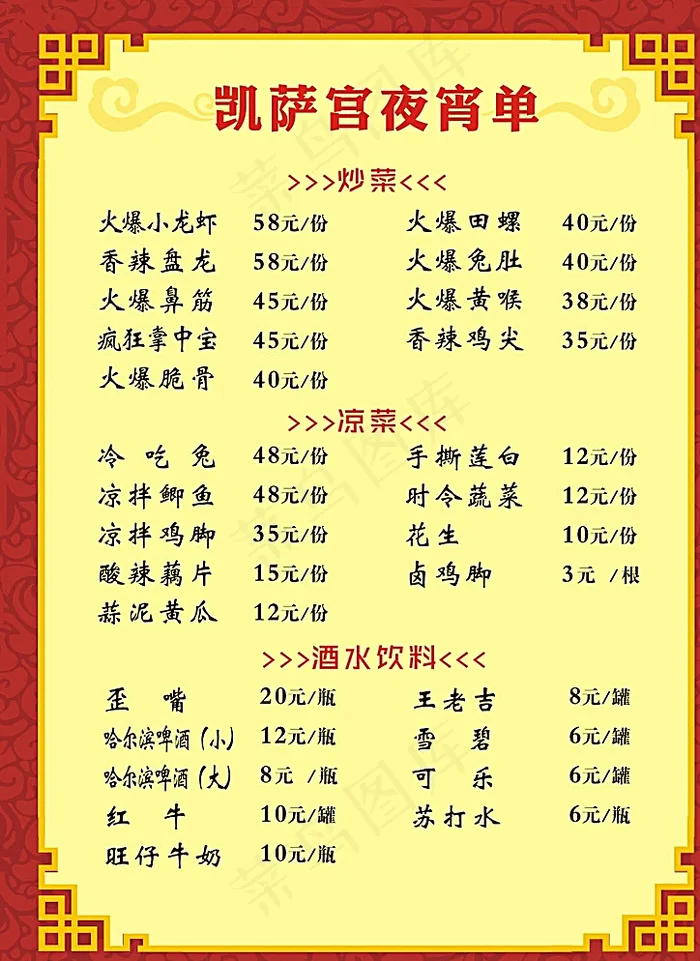 凯萨宫夜宵单
>>>炒菜<<<
火爆小龙虾 58元/份 火爆田螺 40元/份
香辣盘龙 58元/份 火爆兔肚 40元/份
火爆鼻筋 45元/份 火爆黄喉 38元/份
疯狂掌中宝 45元/份 香辣鸡尖 35元/份
火爆脆骨 40元/份
>>>凉菜<<<
冷吃兔 48元/份 手撕莲白 12元/份
凉拌鲫鱼 48元/份 时令蔬菜 12元/份
凉拌鸡脚 35元/份 花生 10元/份
酸辣藕片 15元/份 卤鸡脚 3元 /根
蒜泥黄瓜 12元/份
>>>酒水饮料<<<
歪嘴 20元/瓶 王老吉 8元/罐
哈尔滨啤酒(小) 12元/瓶 雪碧 6元/罐
哈尔滨啤酒(大) 8元 /瓶 可乐 6元/罐
红牛 10元/罐 苏打水 6元/瓶
旺仔牛奶 10元/瓶
菜鸟图库